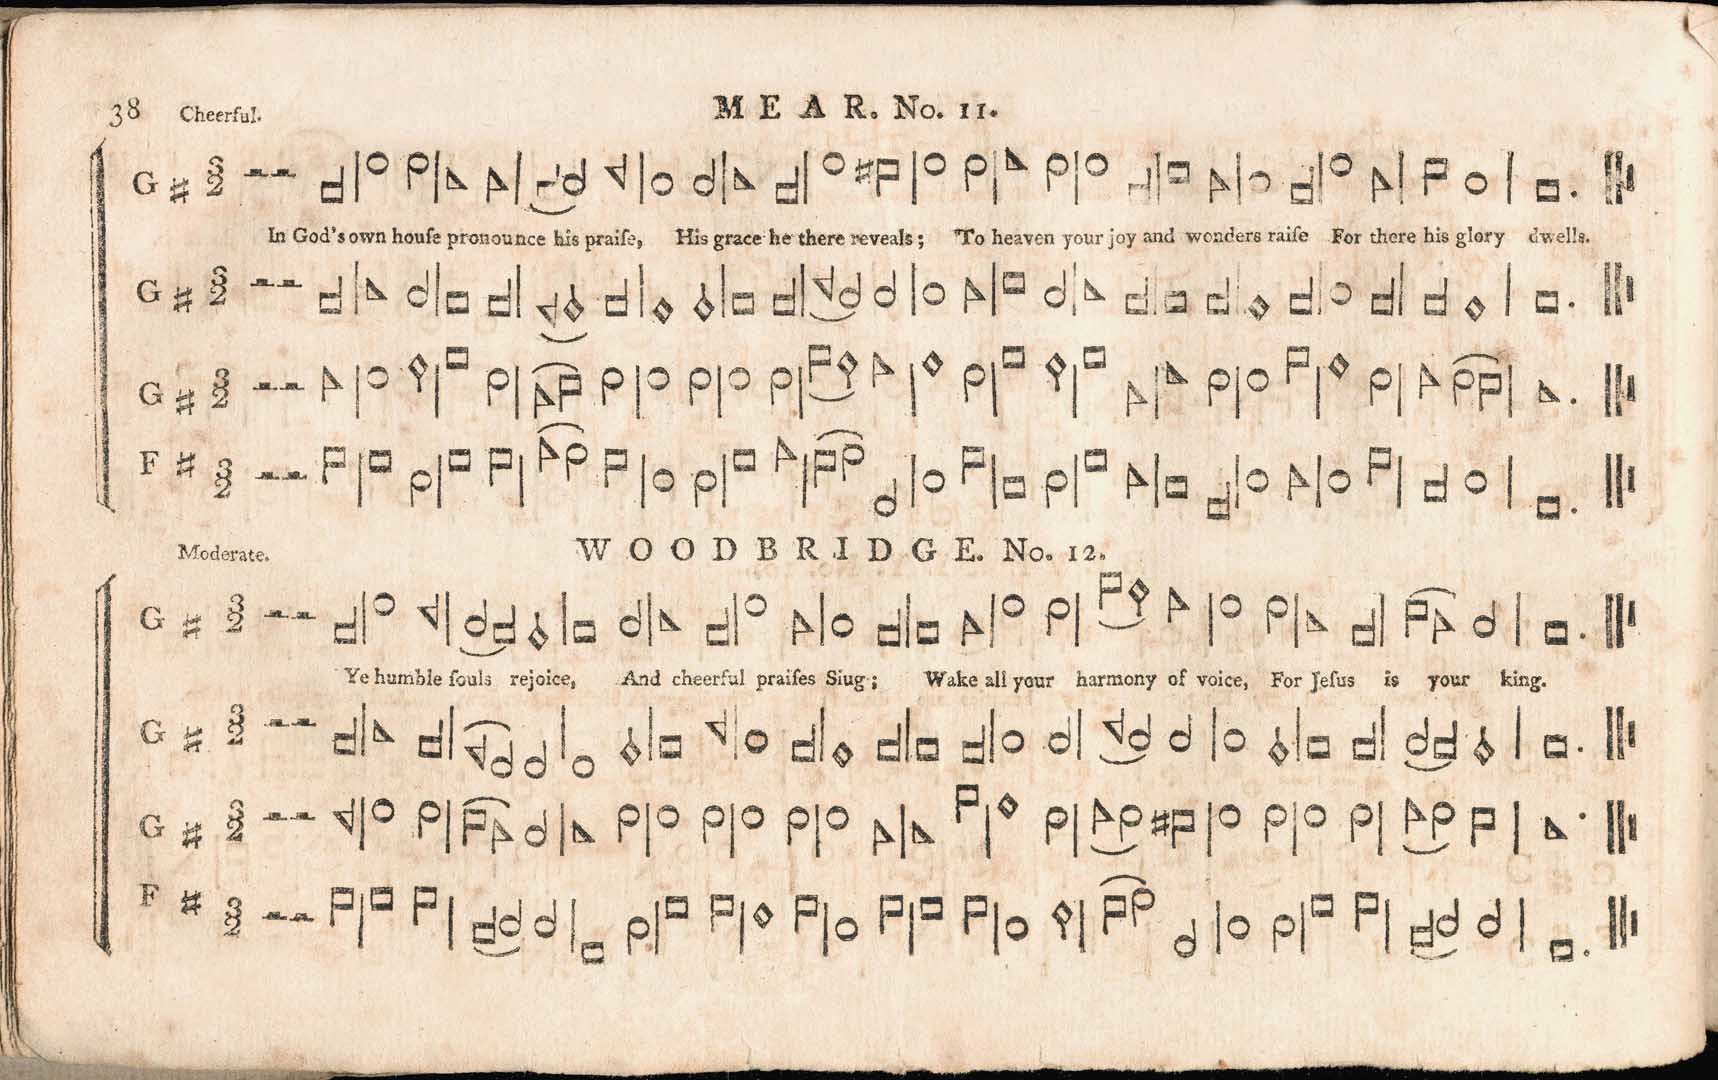 38 Cheerful. MEAR. No. 11.
G
In God's own houſe pronounce his praiſe, His grace he there reveals; To heaven your joy and wonders raiſe For there his glory dwells.
G
G
F
Moderate. WOODBRIDGE. No. 12.
G
Ye humble ſouls rejoice, And cheerful praiſes Siug; Wake all your harmony of voice, For Jeſus is your king.
G
G
F